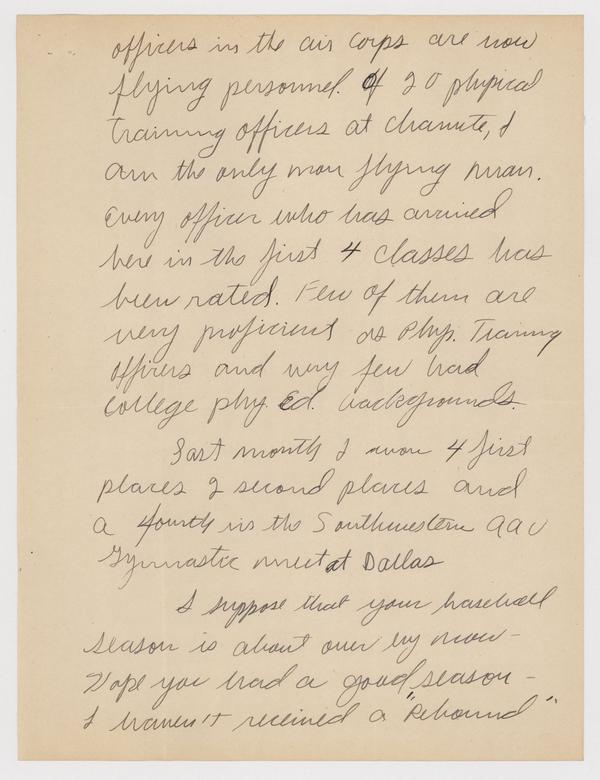 officers in the air corps are now
flying personnel. Of 20 physical
training officers at Chanute, I
am the only non flying man.
Every officer who has arrived
here in the first 4 classes has
been rated. Few of them are
very proficient as Phys. Training
officers and very few had
college phy. Ed. backgrounds.
Last month I won 4 first
places 2 second places and
a fourth in the Southwestern AAU
Gymnastic meet at Dallas
I suppose that your baseball
season is about over by now -
Hope you had a good season -
I haven't received a "Rebound"